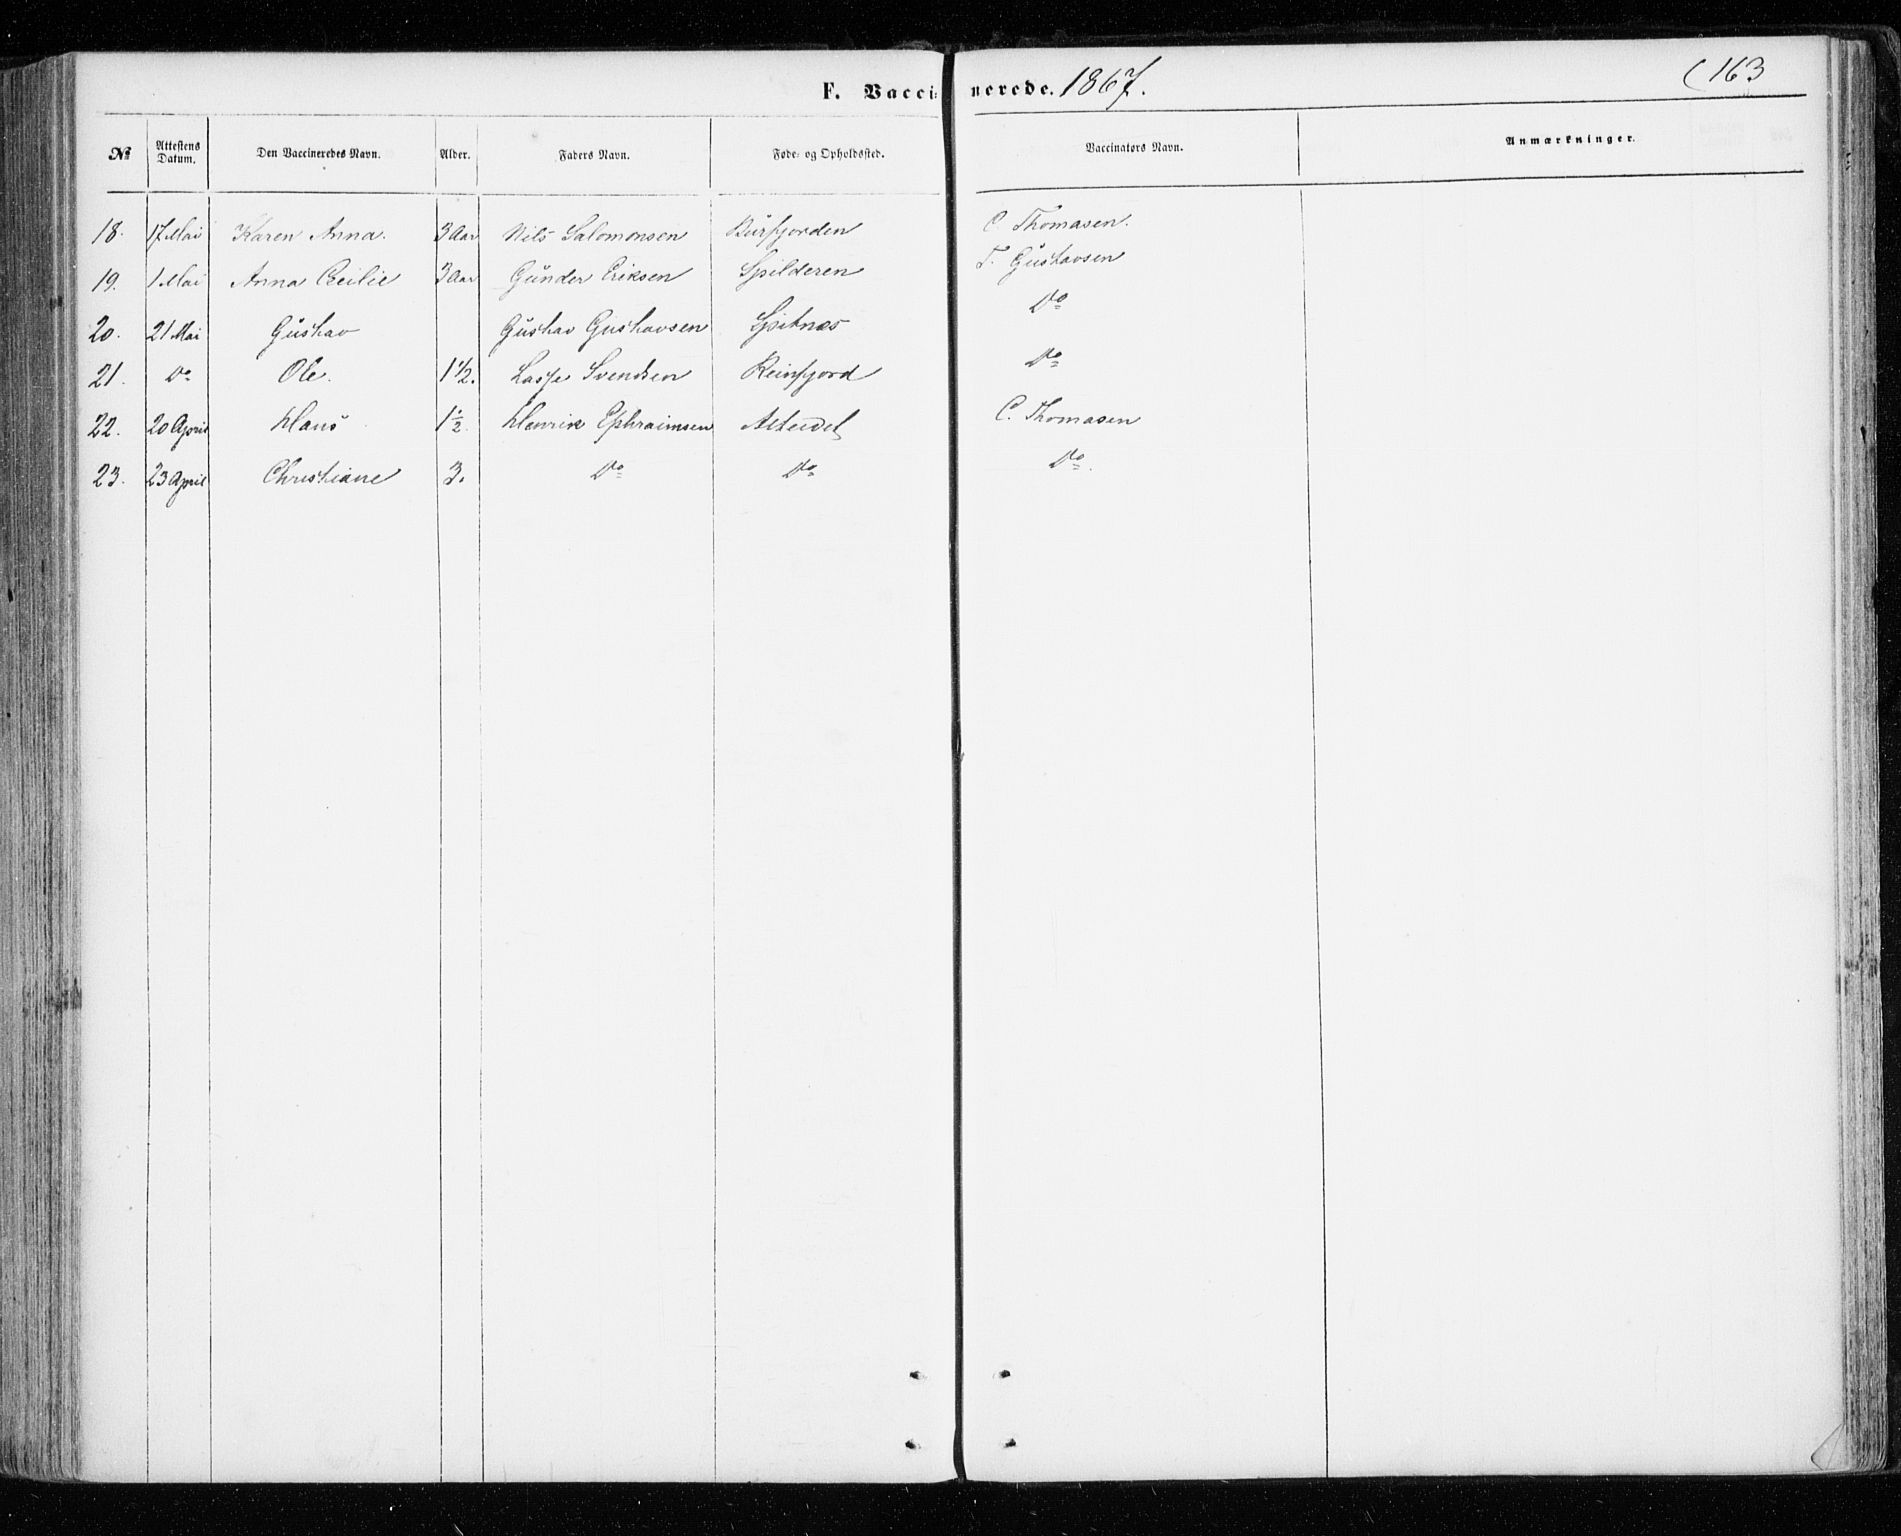 163
F. Vaccinerede. 1867.
№ Attestens Datum. Den Vaccineredes Navn. Alder. Faders Navn. Føde- og Opholdssted. Vaccinators Navn. Anmærkninger.
18. 17 Mai Karen Anna. 3 Aar Nils Salomonsen Bürfjorden C. Thomasen.
19. 1 Mai Anna Cecilie 3 Aar Günder Eriksen Spilderen T. Güstavsen
20. 21 Mai Güstav Güstav Gustavsen Spitnæs Do
21. Do Ole. 1 1/2. Lasse Svendsen Reinfjord Do
22. 20 April Hans 1 1/2. Henrik Ephraimsen Alteidet C. Thomasen
23. 23 April Christiane 3. Do Do Do.